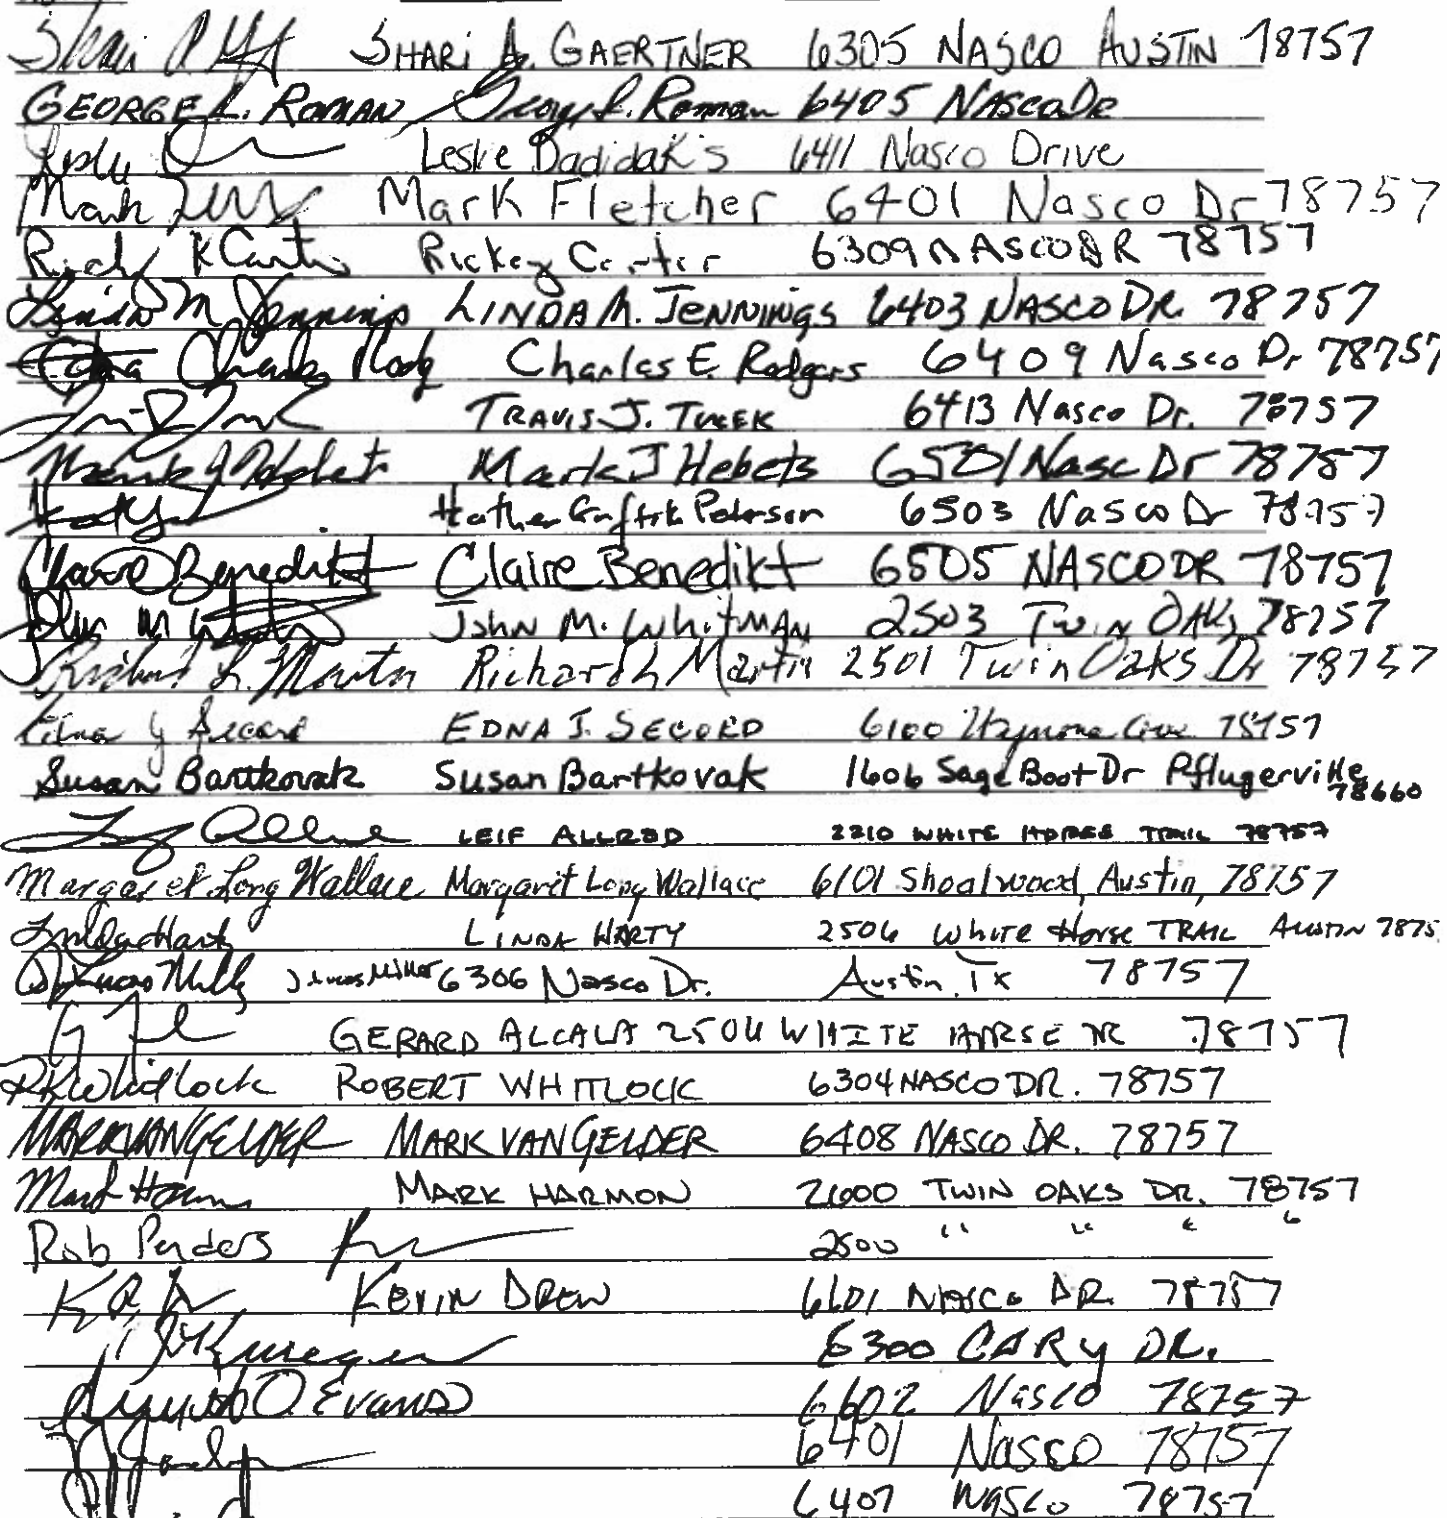 Shari A. SHARi A. GAERTNER 6305 NASCO AUSTIN 78757
GEORGE L. ROMAN George L. Roman 6405 NASCO DR
Leslie Leslie Badidak's 6411 Nasco Drive
Mark Mark Fletcher 6401 Nasco Dr 78757
Ricky K Carter Rickey Carter 6309 NASCO DR 78757
Linda M Jennings LINDA M. JENNINgS 6403 NASCO DR. 78757
Edna Charles Rodg Charles E. Rodgers 6409 Nasco Dr 78757
TRAVIS J. TUCEK 6413 Nasco Dr. 78757
Mark J Hebets Mark J Hebets 6501 Nasc Dr 78757
Heather Peterson 6503 Nasco Dr 78757
Claire Benedikt Claire Benedikt 6505 NASCO DR 78757
John M Whitman John M. WhitMAN 2503 Twin OAKS 78757
Richard L. Martin Richard L Martin 2501 Twin Oaks Dr 78757
Edna J Secord EDNA J. SECORD 6100 78757
Susan Bartkovak Susan Bartkovak 1606 Sage Boot Dr Pflugerville 78660
LEIF ALLRED 2210 WHITE HORSE TRAIL 78757
Margaret Long Wallace Margaret Long Wallace 6101 Shoalwood, Austin, 78757
Linda Harty LINDA HARTY 2506 White Horse TRAIL AUSTIN 7875
J. Lucas Miller J. Lucas Miller 6306 Nasco Dr. Austin, Tx 78757
GERARD ALCALA 2504 WHITE HORSE TR 78757
RK Whitlock ROBERT WHITLOCK 6304 NASCO DR. 78757
MARK VAN GELDER MARK VAN GELDER 6408 NASCO DR. 78757
Mark Harmon MARK HARMON 2600 TWIN OAKS DR. 78757
Rob Penders 2500 " " " "
KEVIN DREW 6601 NASCO DR. 78757
Krueger 6300 CARY DR.
O. Evans 6602 Nasco 78757
6401 Nasco 78757
6407 Nasco 78757